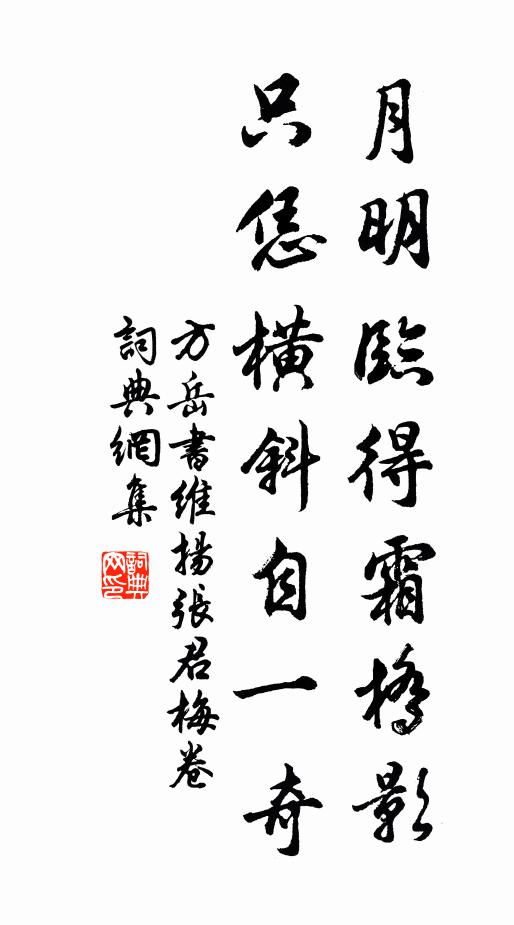 月明臨得霜橋影
只恁橫斜自一奇
方岳書維揚張君梅卷
詞典網集
詞典网印